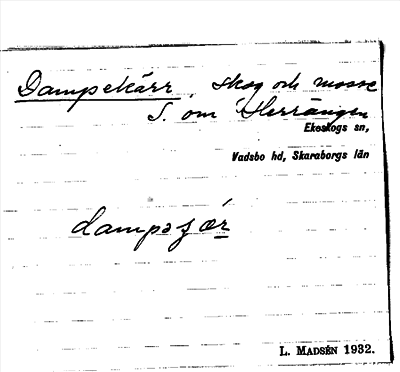 Dampekärr, skog och mosse
S. om Herrängen
Ekeskogs sn,
Vadsbo hd, Skaraborgs län
dampəʃær
L. MADSÉN 1932.